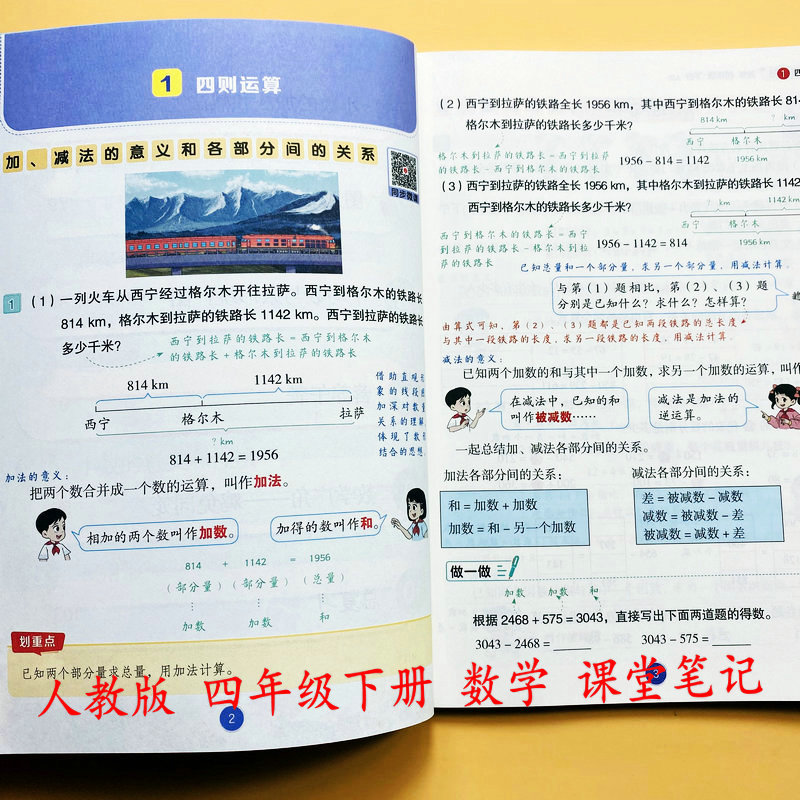 1 四则运算
加、减法的意义和各部分间的关系
同步微课
1 (1)一列火车从西宁经过格尔木开往拉萨。西宁到格尔木的铁路长
814 km，格尔木到拉萨的铁路长 1142 km。西宁到拉萨的铁路长
多少千米？
西宁到拉萨的铁路长＝西宁到格尔木
的铁路长＋格尔木到拉萨的铁路长
814 km 1142 km
西宁 格尔木 拉萨
? km
借助直观形
象的线段图
加深对数量
关系的理解
体现了数形
结合的思想
814 + 1142 = 1956
加法的意义：
把两个数合并成一个数的运算，叫作加法。
相加的两个数叫作加数。
加得的数叫作和。
814 + 1142 = 1956
(部分量) (部分量) (总量)
加数 加数 和
划重点
已知两个部分量求总量，用加法计算。
2
1 四
(2)西宁到拉萨的铁路全长 1956 km，其中西宁到格尔木的铁路长 814
格尔木到拉萨的铁路长多少千米？
814 km ? km
西宁 格尔木
1956 km
格尔木到拉萨的铁路长＝西宁到拉萨
的铁路长－西宁到格尔木的铁路长
1956 − 814 = 1142
(3)西宁到拉萨的铁路全长 1956 km，其中格尔木到拉萨的铁路长 1142
西宁到格尔木的铁路长多少千米？
? km 1142 km
西宁 格尔木
1956 km
西宁到格尔木的铁路长＝西宁
到拉萨的铁路长－格尔木到拉
萨的铁路长
1956 − 1142 = 814
已知总量和一个部分量，求另一个部分量，用减法计算。
与第(1)题相比，第(2)、(3)题
分别是已知什么？求什么？怎样算？
由算式可知，第(2)、(3)题都是已知两段铁路的总长度
与其中一段铁路的长度，求另一段铁路的长度，用减法计算。
减法的意义：
已知两个加数的和与其中一个加数，求另一个加数的运算，叫作
在减法中，已知的和
叫作被减数……
减法是加法的
逆运算。
一起总结加、减法各部分间的关系。
加法各部分间的关系：
和＝加数＋加数
加数＝和－另一个加数
减法各部分间的关系：
差＝被减数－减数
减数＝被减数－差
被减数＝减数＋差
做一做
加数 加数 和
根据 2468 + 575 = 3043，直接写出下面两道题的得数。
3043 − 2468 = ______ 3043 − 575 = ______
3
人教版 四年级下册 数学 课堂笔记